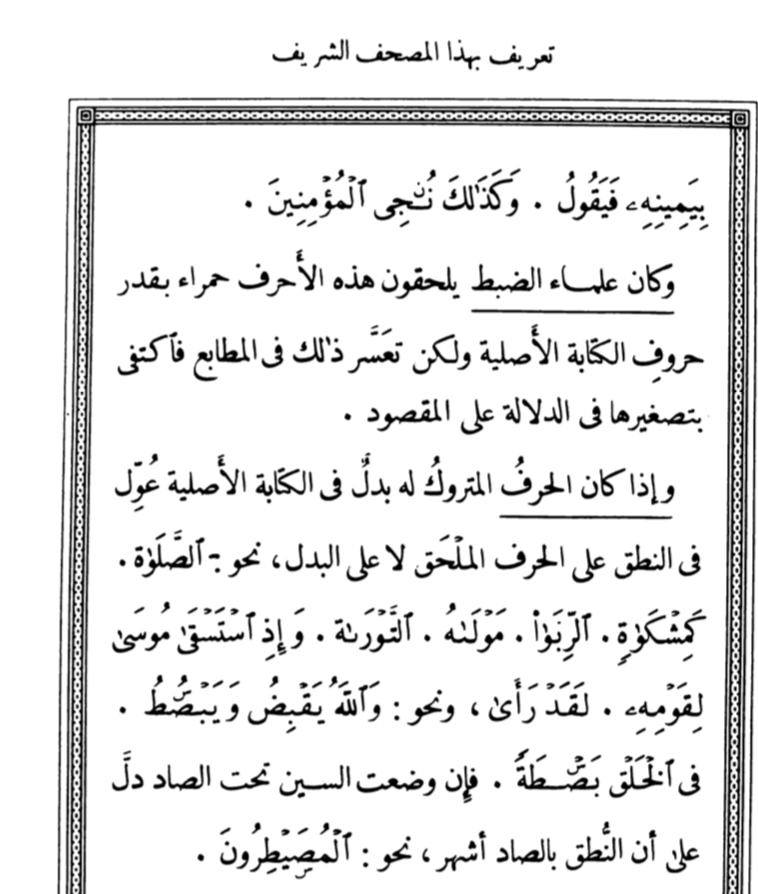 تعريف بهذا المصحف الشريف
بِيَمِينِهِۦ فَيَقُولُ . وَكَذَٰلِكَ نُـۨجِى ٱلْمُؤْمِنِينَ .
وكان علمـاء الضبط يلحقون هذه الأَحرف حمراء بقدر
حروفِ الكتابة الأَصلية ولكن تعَسَّر ذٰلك فى المطابع فٱكتفى
بتصغيرها فى الدلالة على المقصود .
وإذا كان الحرفُ المتروكُ له بدلٌ فى الكتابة الأَصلية عُوِّل
فى النطق على الحرف الملْحَق لا على البدل، نحو :ـ ٱلصَّلَوٰة .
كَمِشْكَوٰةٍ . ٱلرِّبَوٰا۟ . مَوْلَىٰهُ . ٱلتَّوْرَىٰة . وَإِذِ ٱسْتَسْقَىٰ مُوسَىٰ
لِقَوْمِهِۦ . لَقَدْ رَأَىٰ ، ونحو : وَٱللَّهُ يَقْبِضُ وَيَبْصُۜطُ .
فى ٱلْخَلْقِ بَصْۜـطَةً . فإِن وضعت السـين تحت الصاد دلَّ
على أن النُّطق بالصاد أشهر ، نحو : ٱلْمُصَۣيْطِرُونَ .